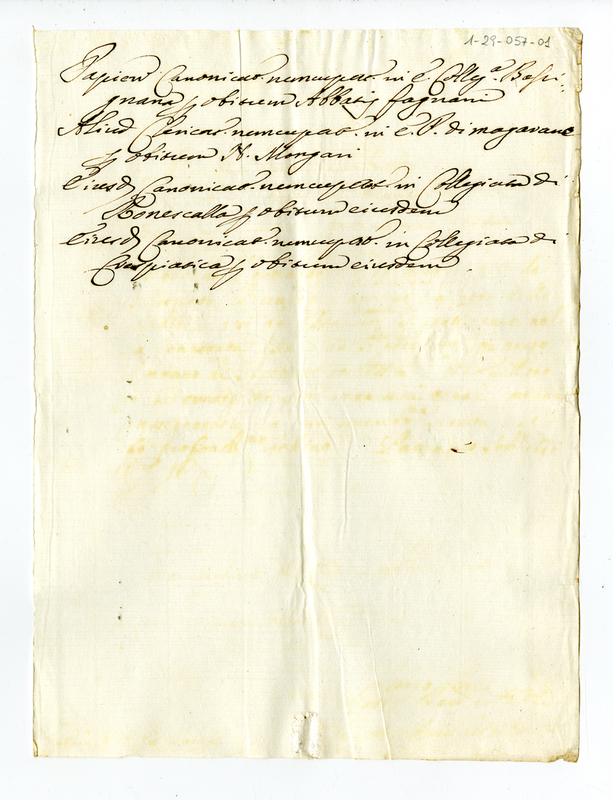 1-29-057-01
Papien. Canonicat. nuncupat. in e. Colleg.ª Bassi,
gnana p obitum Abbatis Fagnani
Aliud Clericat. nuncupat. in e. P. di
p obitum N. Mongari
Eiusd. Canonicat. nuncupat. in Collegiata di
Ronescalla p obitum eiusdem
Eiusd. Canonicat. nuncupat. in Collegiata di
p obitum eiusdem.